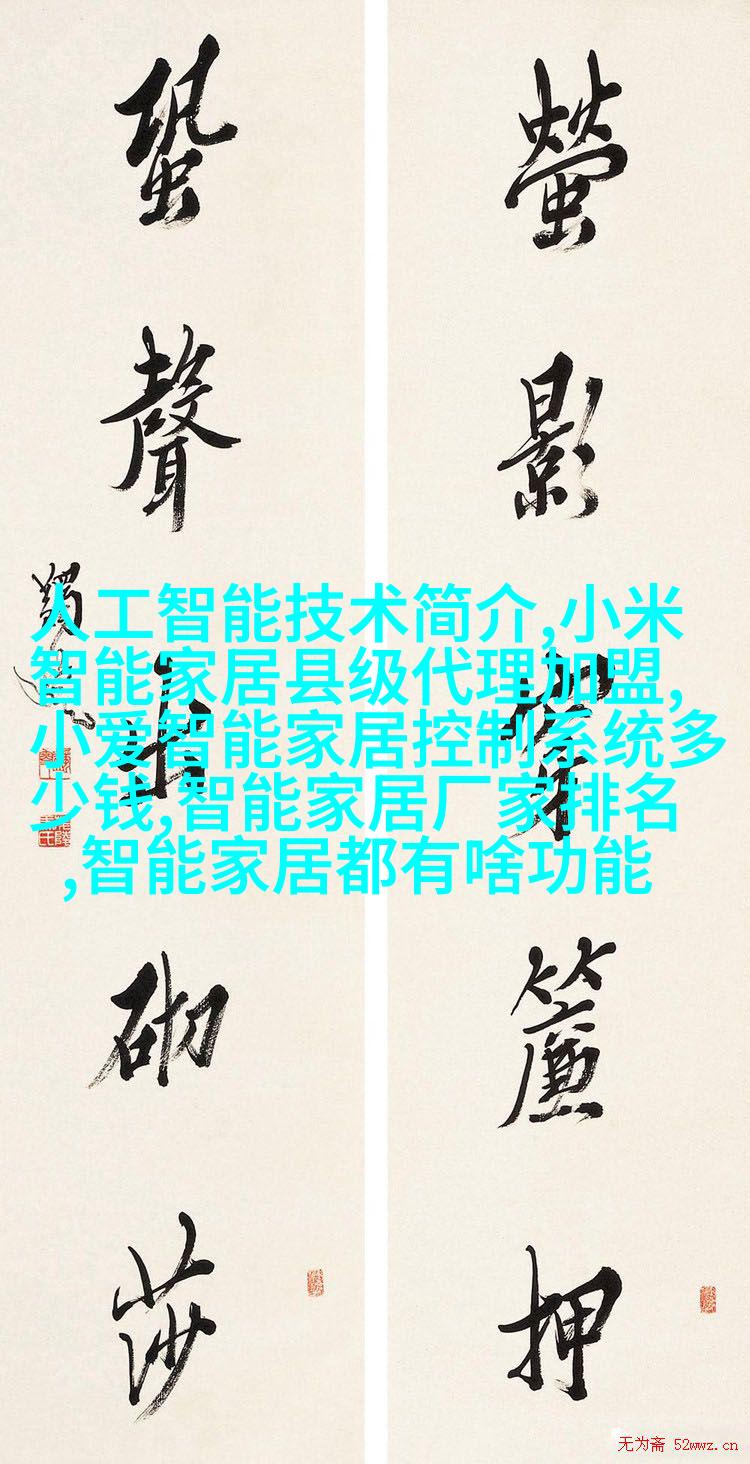 螢影
簾押
蛩聲
砌莎
人工智能技术简介,小米
智能家居县级代理加盟,
小爱智能家居控制系统多
少钱,智能家居厂家排名
,智能家居都有啥功能
无为斋 52wwz.cn